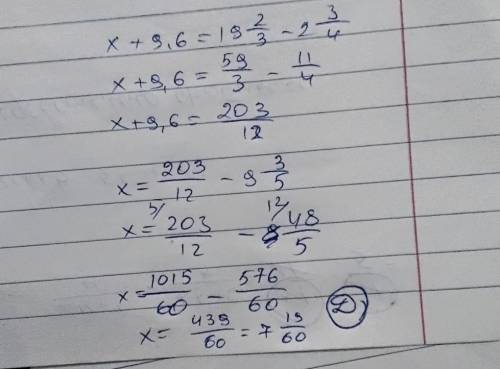 x + 9,6 = 19 2/3 - 2 3/4
x + 9,6 = 59/3 - 11/4
x + 9,6 = 203/12
x = 203/12 - 9 3/5
x = 5/ 203/12 - 12/ 48/5
x = 1015/60 - 576/60
x = 439/60 = 7 19/60 D